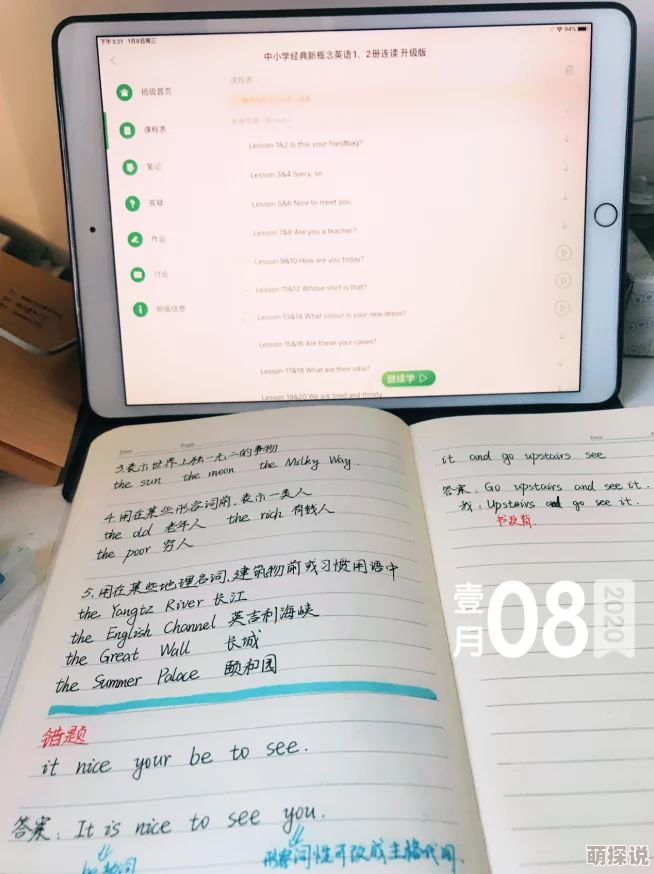 下午3:21 1月8日周三
94%
中小学经典新概念英语1、2册连读 升级版
班级首页
课程表
笔记
答疑
作业
讨论
班级信息
课程表
Lesson 1&2 Is this your handbag?
Lesson 3&4 Sorry, sir.
Lesson 5&6 Nice to meet you.
Lesson 7&8 Are you a teacher?
Lesson 9&10 How are you today?
Lesson 11&12 Whose shirt is that?
Lesson 13&14 What colour is your new dress?
Lesson 15&16 Are these your cases?
Lesson 17&18 What are their jobs?
Lesson 19&20 We are tired and thirsty.
继续学
Date Page
3.表示世界上独一无二的事物
the sun the moon the Milky Way.
4.用在某些形容词前,表示一类人
the old 老年人 the rich 有钱人
the poor 穷人
5.用在某些地理名词,建筑物前或习惯用语中
the Yangtz River 长江
the English Channel 英吉利海峡
the Great Wall 长城
the Summer Palace 颐和园
错题
it nice your be to see.
答案:It is nice to see you.
be动词
形容词性可改成主格代词.
Date
it and go upstairs see
答案. Go upstairs and see it.
我. Upstairs and go see it.
壹月08
2020
萌探说